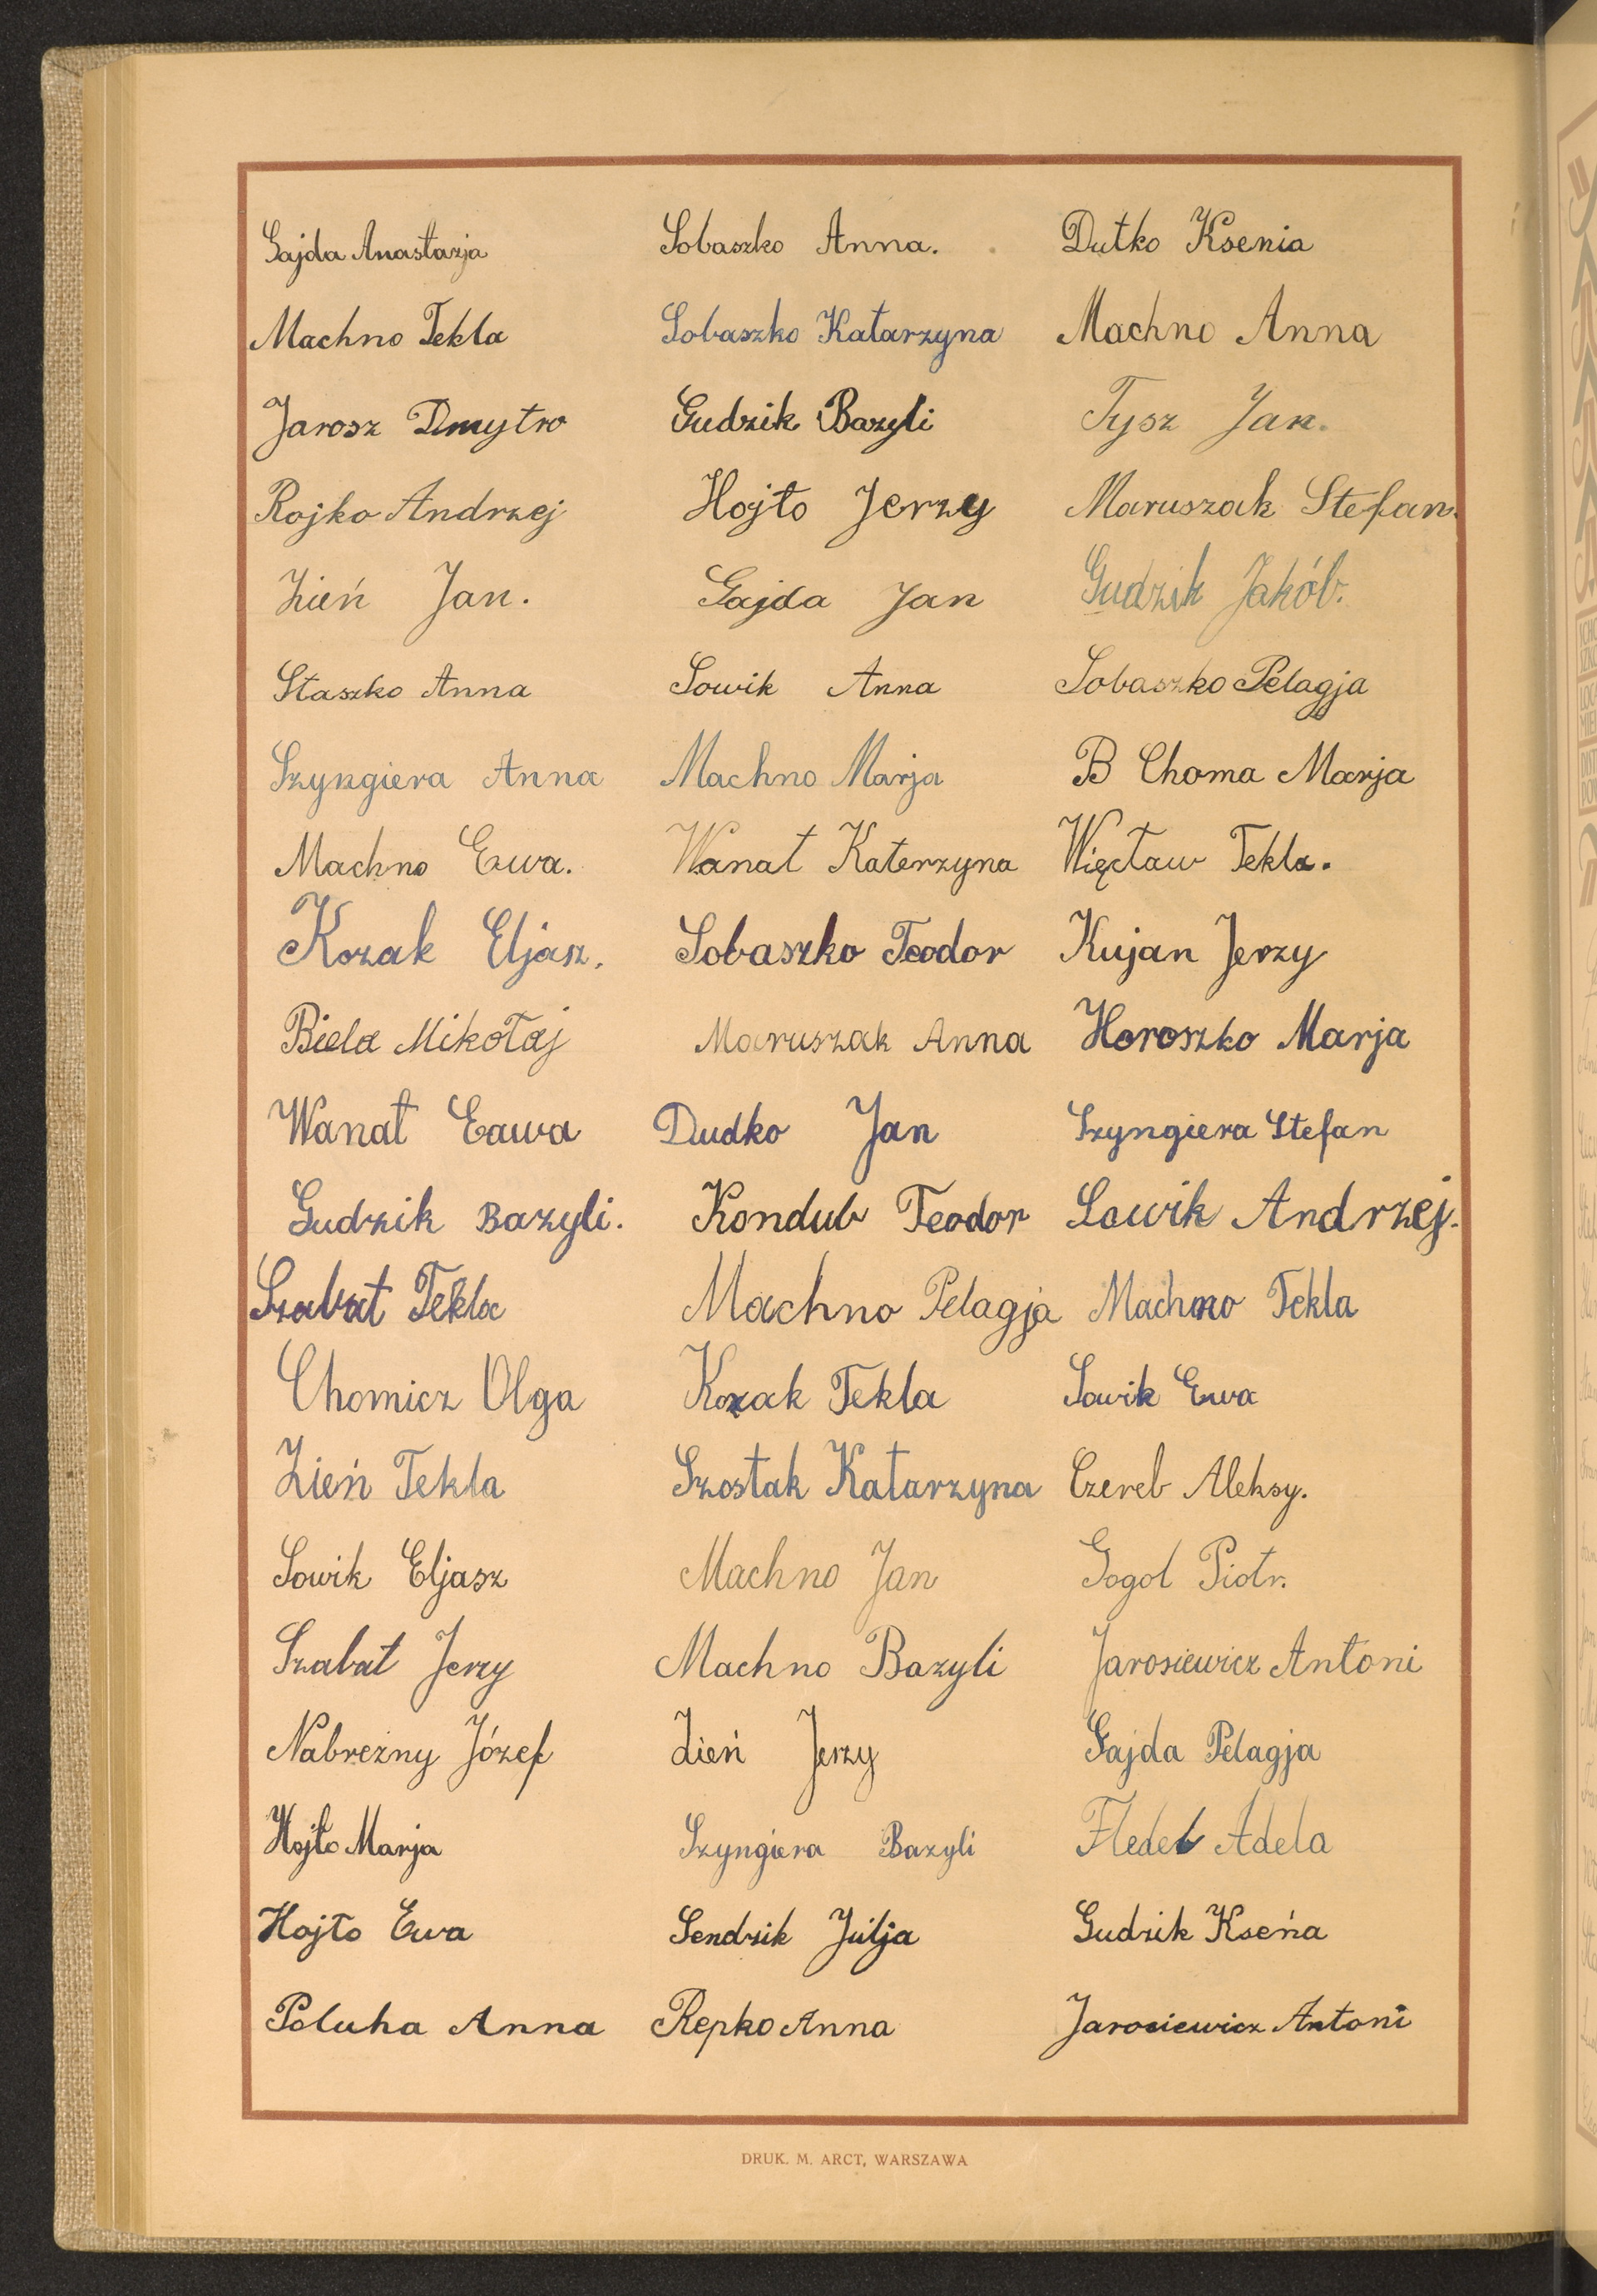 Gajda Anastazja
Machno Tekla
Jarosz Dmytro
Rojko Andrzej
Zień Jan.
Staszko Anna
Szyngiera Anna
Machno Ewa.
Kozak Eljasz.
Biela Mikołaj
Wanat Eawa
Gudzik Bazyli.
Szabat Tekla
Chomicz Olga
Zień Tekla
Sowik Eljasz
Szabat Jerzy
Nabrezny Józef
Hojło Marja
Hojło Ewa
Poluha Anna
Sobaszko Anna.
Sobaszko Katarzyna
Gudzik Bazyli
Hojło Jerzy
Gajda Jan
Sowik Anna
Machno Marja
Wanat Katerzyna
Sobaszko Teodor
Maruszak Anna
Dudko Jan
Kondub Teodor
Machno Pelagja
Kozak Tekla
Szostak Katarzyna
Machno Jan
Machno Bazyli
Zień Jerzy
Szyngiera Bazyli
Sendzik Julja
Repko Anna
Dutko Ksenia
Machno Anna
Tysz Jan.
Maruszak Stefan.
Gudzik Jakób.
Sobaszko Pelagja
B Choma Marja
Więcław Tekla.
Kujan Jerzy
Horoszko Marja
Szyngiera Stefan
Sowik Andrzej.
Machno Tekla
Sowik Ewa
Czereb Aleksy.
Gogol Piotr.
Jarosiewicz Antoni
Gajda Pelagja
Fledel Adela
Gudzik Kseńa
Jarosiewicz Antoni
DRUK. M. ARCT, WARSZAWA